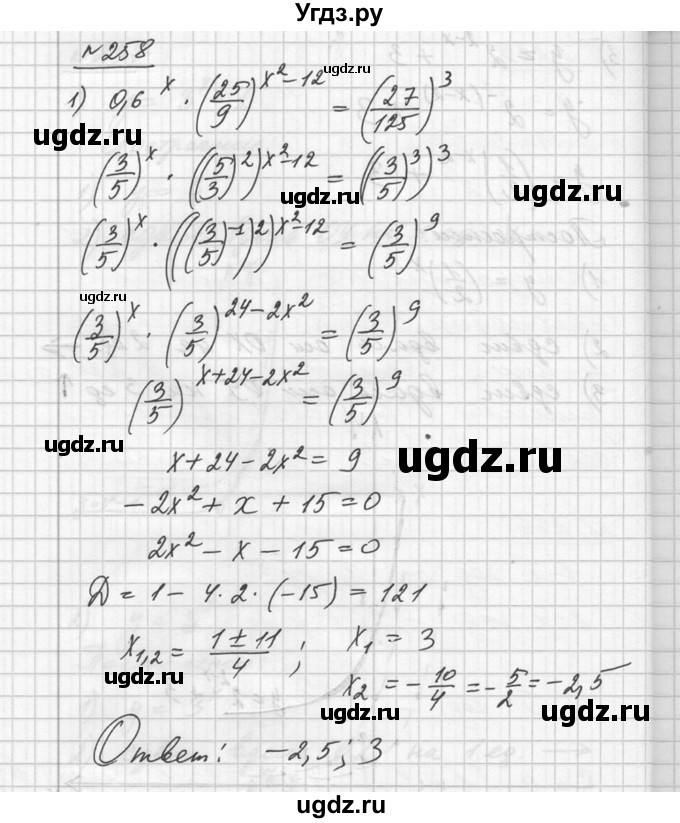 Угдз.ру
№258
1) 0,6^x · (25/9)^(x²-12) = (27/125)^3
ugdz.ru
ugdz.ru
(3/5)^x · ((5/3)^2)^(x²-12) = ((3/5)^3)^3
ugdz.ru
ugdz.ru
(3/5)^x · (((3/5)^-1)^2)^(x²-12) = (3/5)^9
ugdz.ru
(3/5)^x · (3/5)^(24-2x²) = (3/5)^9
(3/5)^(x+24-2x²) = (3/5)^9
ugdz.ru
x+24-2x² = 9
ugdz.ru
-2x² + x + 15 = 0
ugdz.ru
2x² - x - 15 = 0
ugdz.ru
D = 1 - 4·2·(-15) = 121
x1,2 = (1±11)/4 ; x1 = 3
ugdz.ru
x2 = -10/4 = -5/2 = -2,5
ugdz.ru
ugdz.ru
Ответ: -2,5; 3
ugdz.ru
ugdz.ru
ugdz.ru